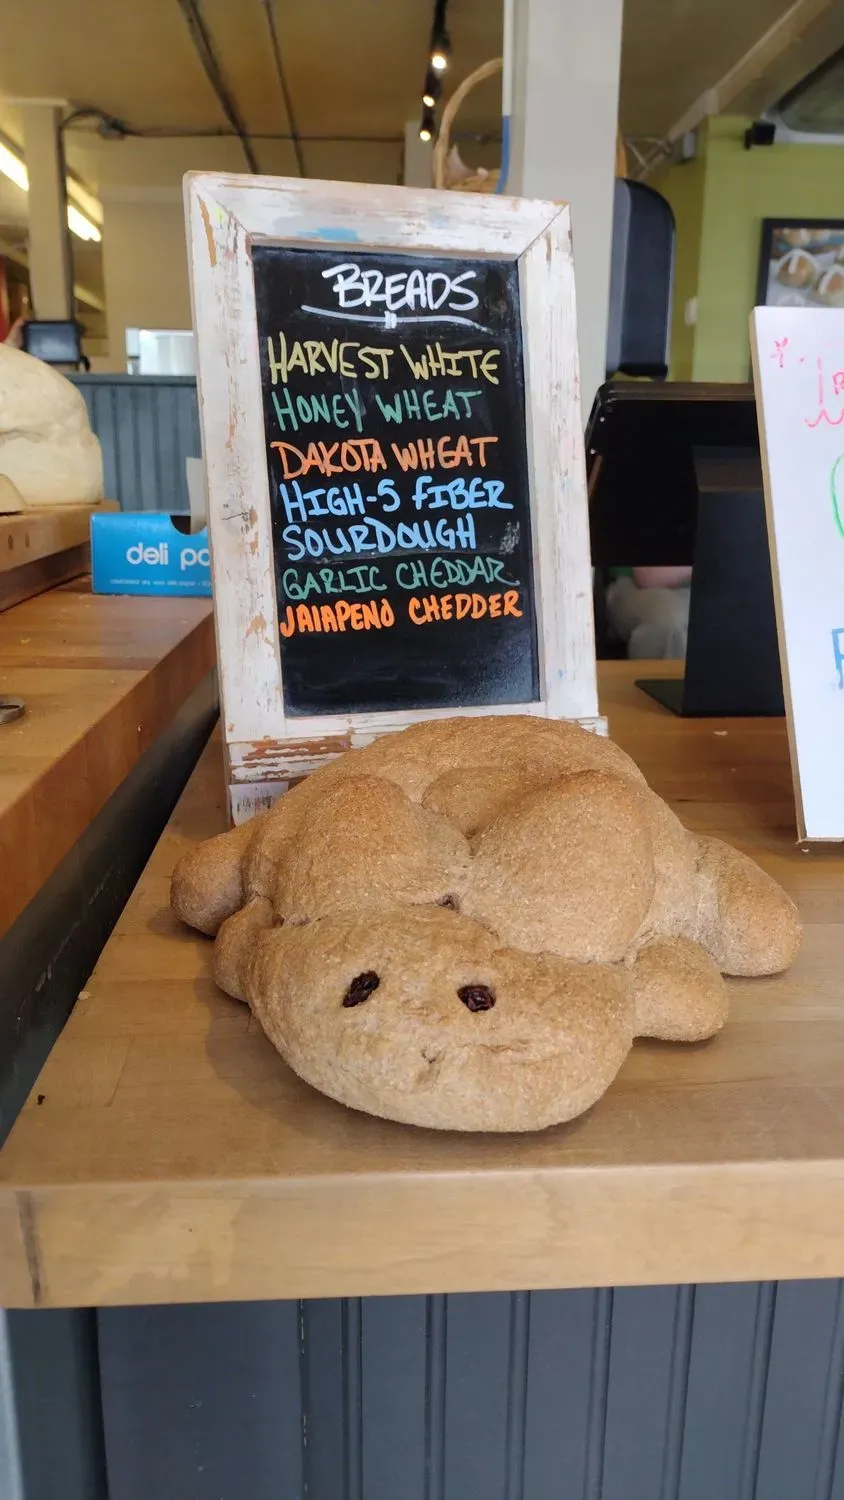 BREADS
HARVEST WHITE
HONEY WHEAT
DAKOTA WHEAT
HIGH-5 FIBER
SOURDOUGH
GARLIC CHEDDAR
JAlAPENO CHEDDER
deli